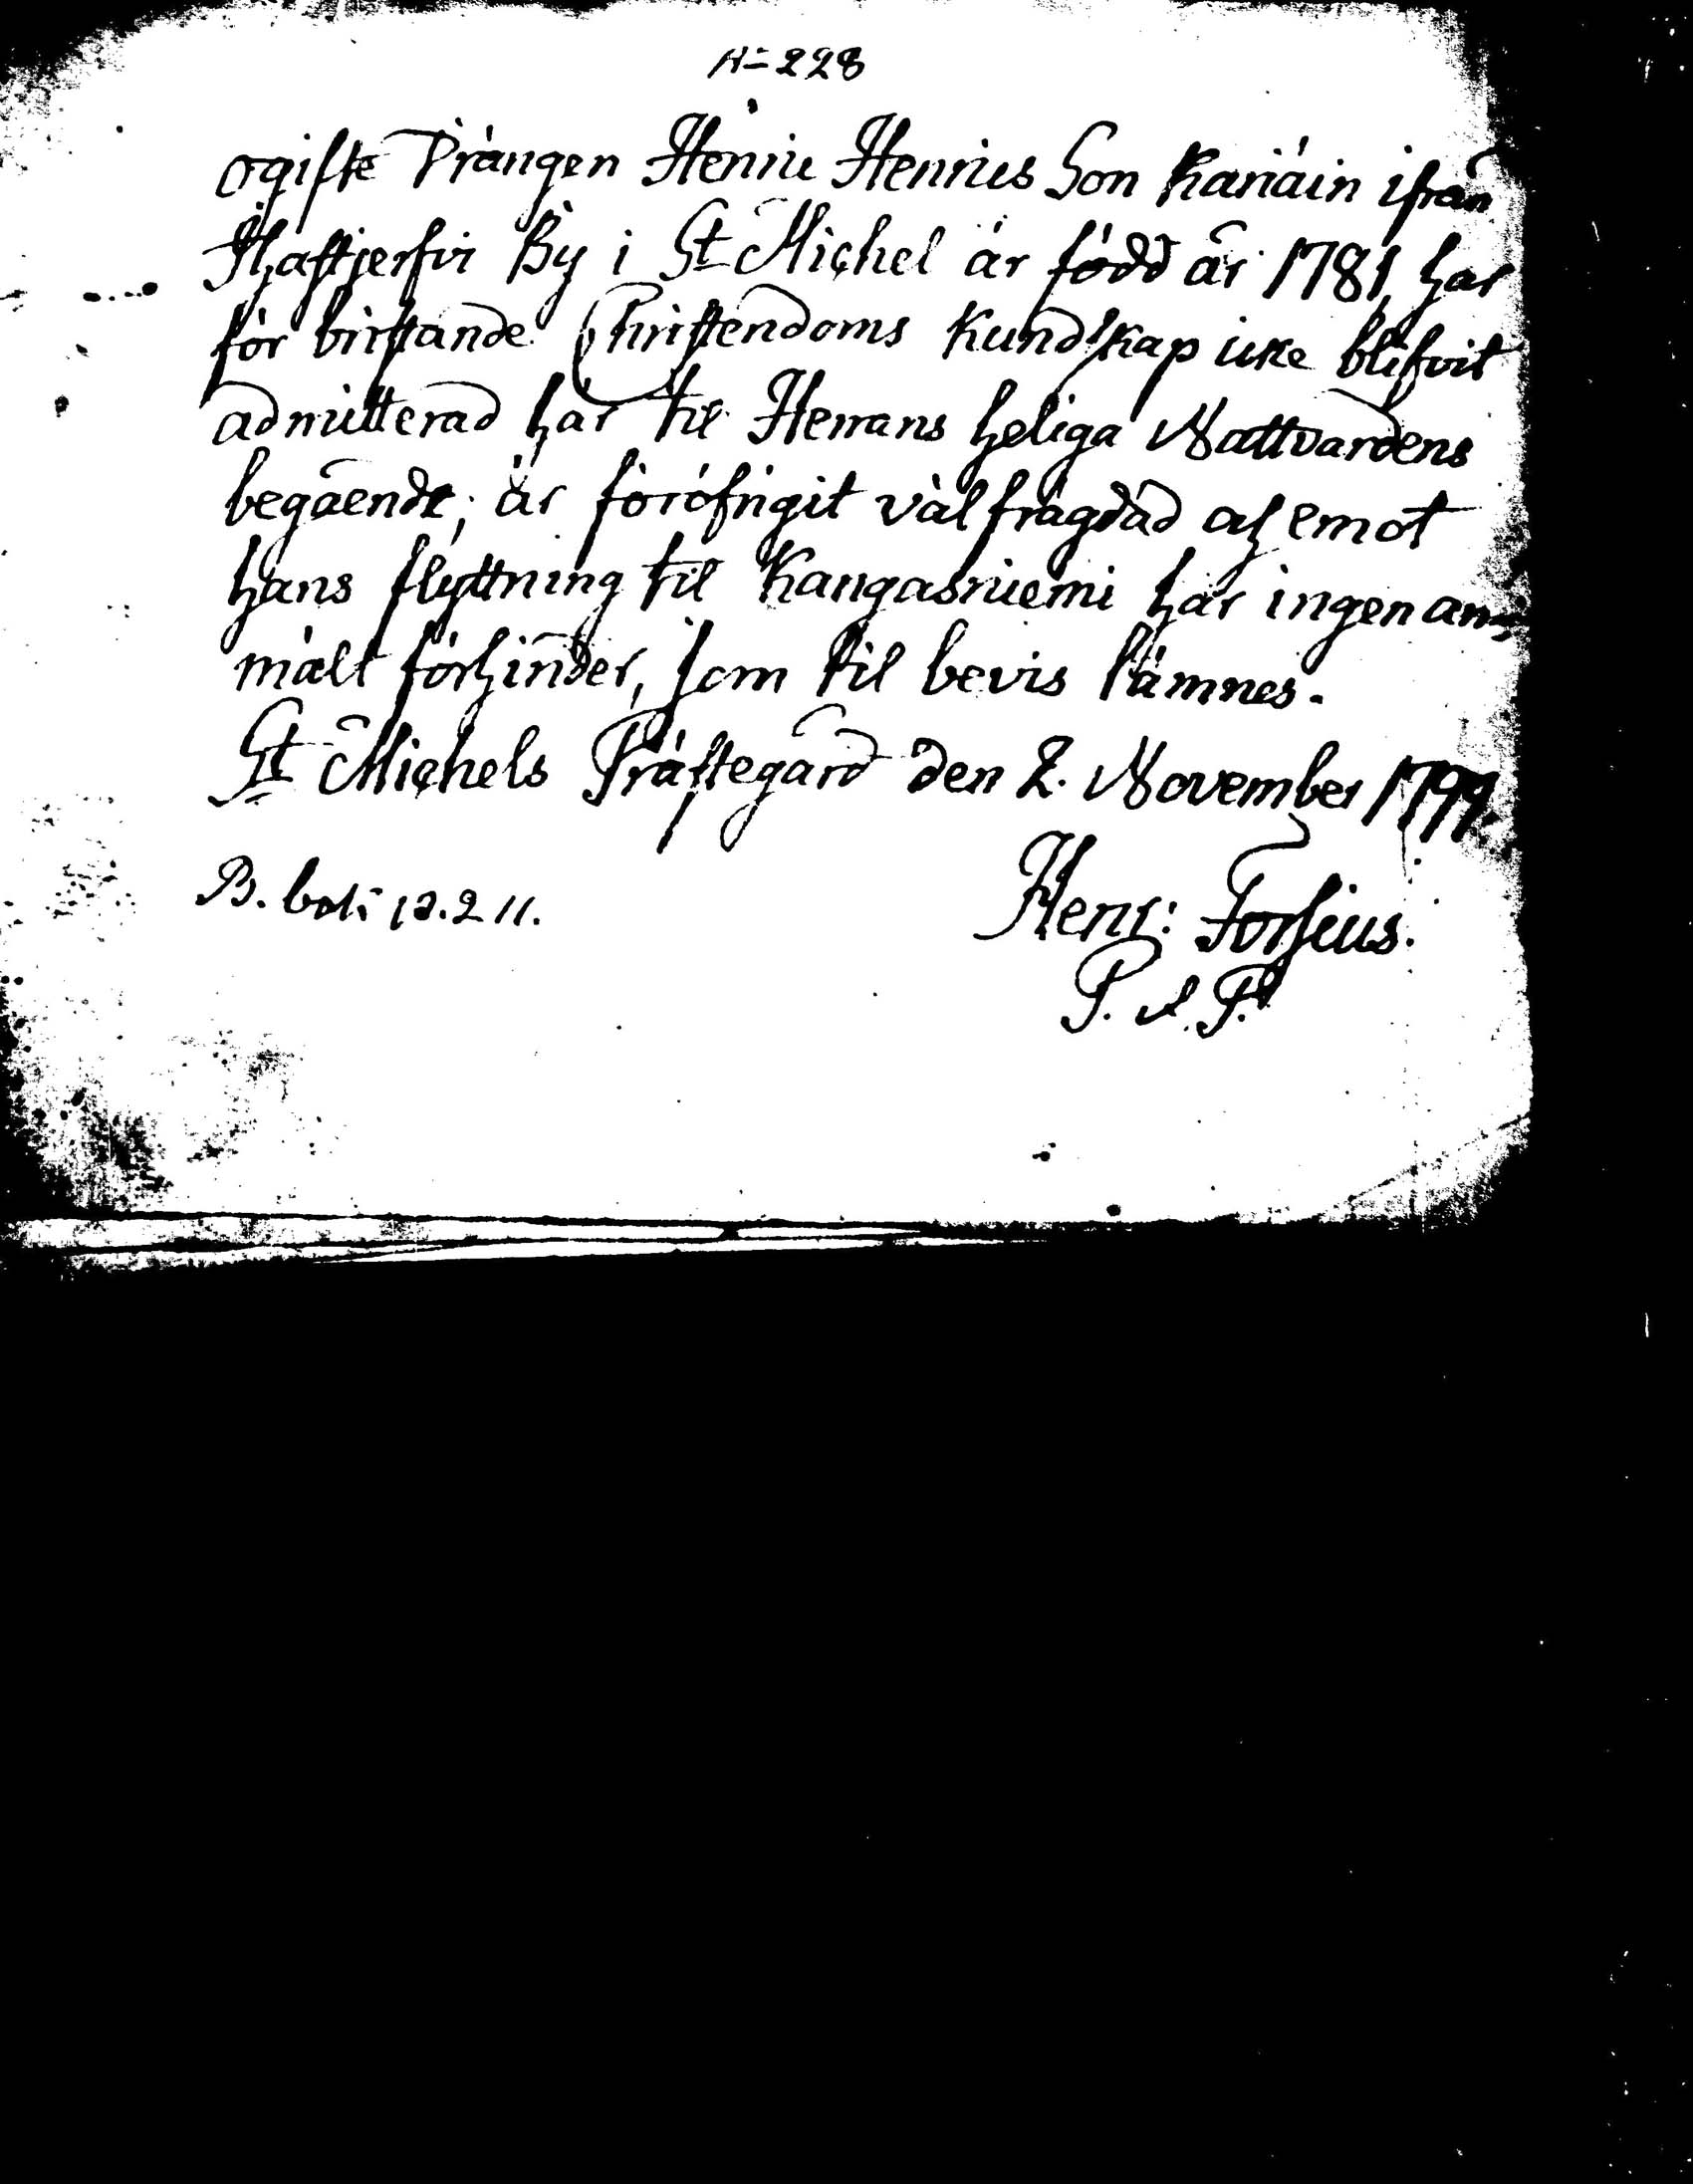 N= 228
ogifte Drängen Henric Henrics Son Kariäin ifrån
Ihastjerfvi By i St Michel är född år 1781, har
för bristande Christendoms Kundskap icke blifvit
admitterad här til Herrans heliga Nattvardens
begående; är föröfrigit välfrägdad och emot
hans flyttning til Kangasniemi har ingen an=
mält förhinder, som til bevis lämnes.
St Michels Prästegård den 2. November 1799.
Henr: Forsius.
P. A. P.